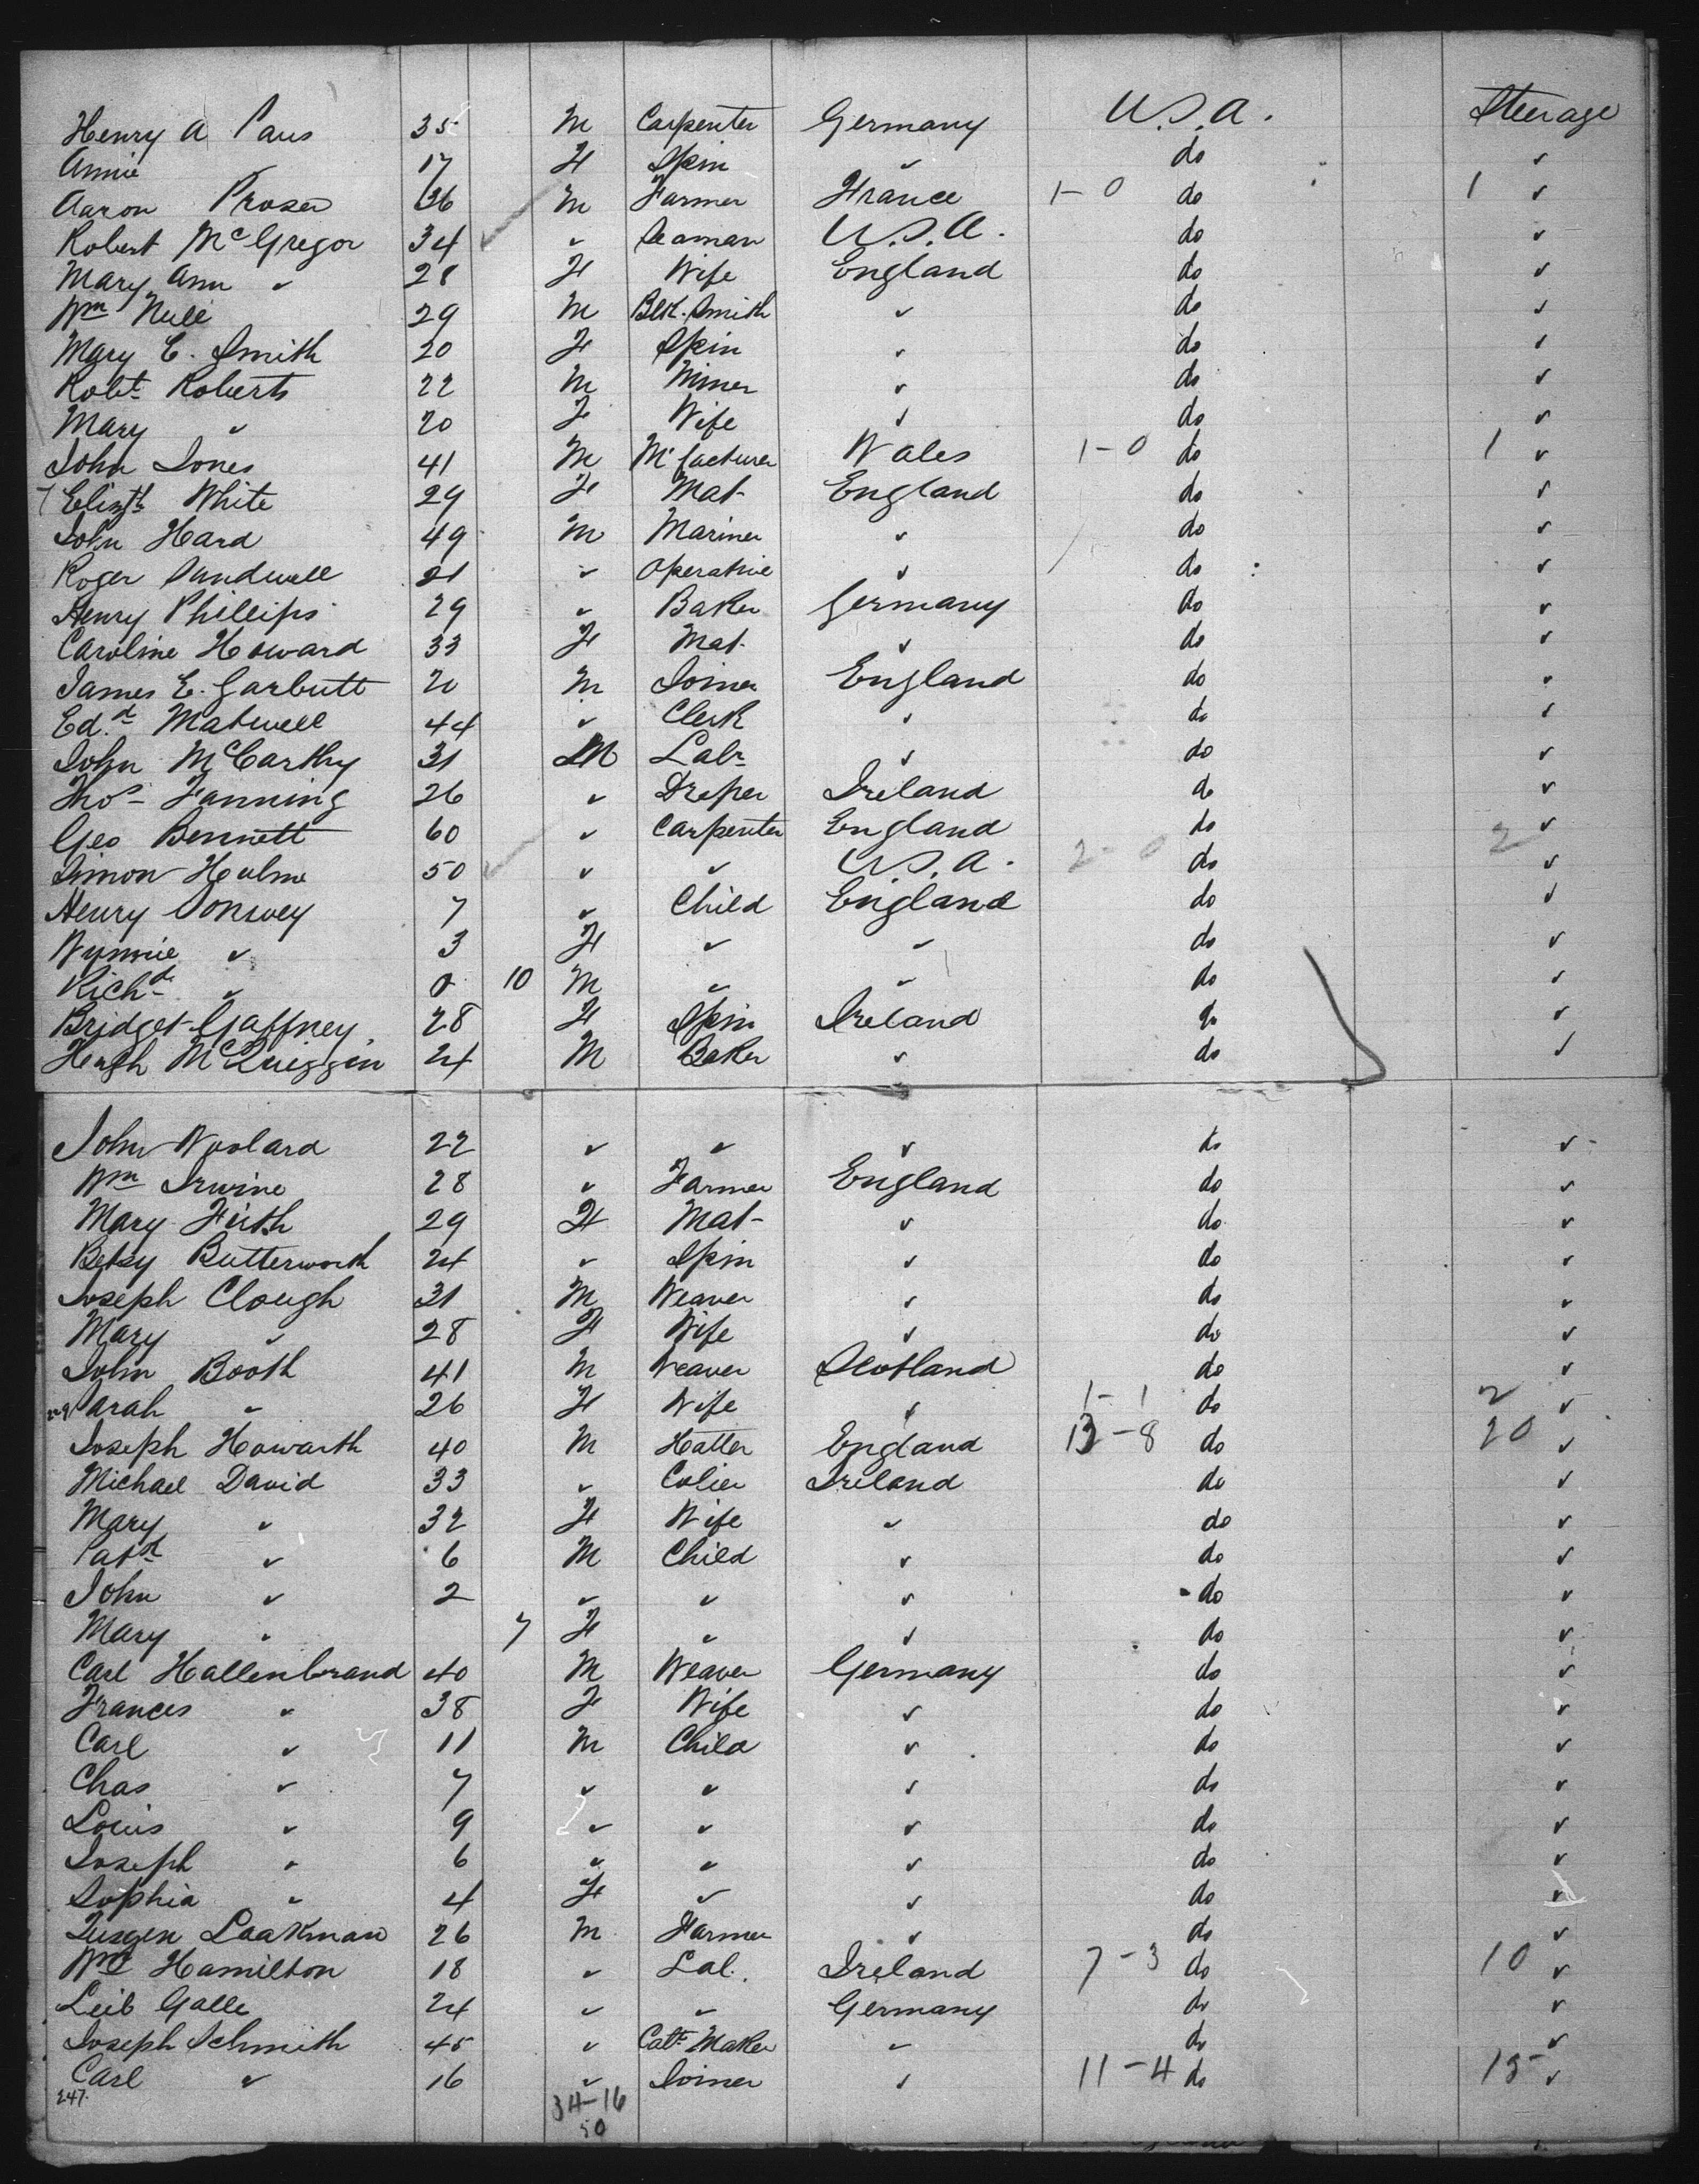 Henry A Paus 35 M Carpenter Germany U.S.A. Steerage
Annie ✓ 17 F Spin ✓ do ✓
Aaron Proser 36 M Farmer France 1-0 do 1 ✓
Robert McGregor 34 ✓ Seaman U.S.A. do ✓
Mary Ann ✓ 28 F Wife England do ✓
Wm 29 M Blk. Smith ✓ do ✓
Mary E. Smith 20 F Spin ✓ do ✓
Robt Roberts 22 M Miner ✓ do ✓
Mary ✓ 20 F Wife ✓ do ✓
John Jones 41 M M'facturer Wales 1-0 do 1 ✓
Elizth White 29 F Mat England do ✓
John Hard 49 M Mariner ✓ do ✓
Roger Sandwell 21 ✓ Operative ✓ do ✓
Henry Phillips 29 ✓ Baker Germany do ✓
Caroline Howard 33 F Mat. ✓ do ✓
James E. Garbutt 20 M Joiner England do ✓
Edd Matwell 44 ✓ Clerk ✓ do ✓
John McCarthy 31 M Labr ✓ do ✓
Thos Fanning 26 ✓ Draper Ireland do ✓
Geo Bennett 60 ✓ Carpenter England do ✓
Simon Hulme 50 ✓ ✓ U.S.A. 2-0 do 2 ✓
Henry 7 ✓ Child England do ✓
Wynnie ✓ 3 F ✓ ✓ do ✓
Richd ✓ 0 10 M ✓ ✓ do ✓
Bridget Gaffney 28 F Spin Ireland do ✓
Hugh McQuiggin 24 M Baker ✓ do ✓
John Woolard 22 ✓ ✓ ✓ do ✓
Wm Irwine 28 ✓ Farmer England do ✓
Mary Firth 29 F Mat ✓ do ✓
Betsy Butterworth 24 ✓ Spin ✓ do ✓
Joseph Clough 31 M Weaver ✓ do ✓
Mary ✓ 28 F Wife ✓ do ✓
John Booth 41 M Weaver Scotland do ✓
Sarah ✓ 26 F Wife ✓ 1-1 do 2 ✓
Joseph Howarth 40 M Hatter England 12-8 do 20 ✓
Michael David 33 ✓ Colier Ireland do ✓
Mary ✓ 32 F Wife ✓ do ✓
Patk ✓ 6 M Child ✓ do ✓
John ✓ 2 ✓ ✓ ✓ do ✓
Mary ✓ 7 F ✓ ✓ do ✓
Carl Hallenbrand 40 M Weaver Germany do ✓
Frances ✓ 38 F Wife ✓ do ✓
Carl ✓ 11 M Child ✓ do ✓
Chas ✓ 7 ✓ ✓ ✓ do ✓
Louis ✓ 9 ✓ ✓ ✓ do ✓
Joseph ✓ 6 ✓ ✓ ✓ do ✓
Sophia ✓ 4 F ✓ ✓ do ✓
Laakman 26 M Farmer ✓ do ✓
Wm Hamilton 18 ✓ Lab. Ireland 7-3 do 10 ✓
Leib Galle 24 ✓ ✓ Germany do ✓
Joseph Schmith 45 ✓ Cabt Maker ✓ do ✓
Carl ✓ 16 ✓ Joiner ✓ 11-4 do 15 ✓
247.
34-16
50